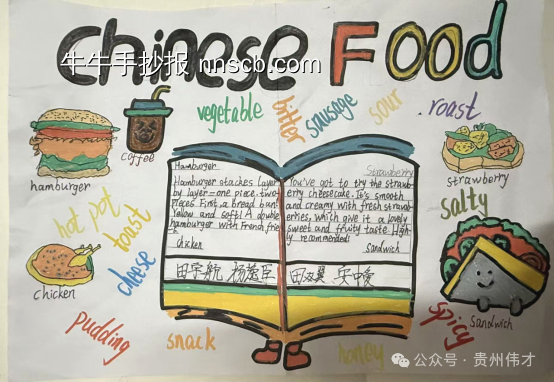 Chinese Food
牛牛手抄报 nnscb.com
vegetable
bitter
sausage
sour
roast
coffee
hamburger
strawberry
hot pot
toast
salty
chicken
cheese
Hamburger
Hamburger stackes layer
by layer—one piece, two
pieces. First a bread bun
Yellow and soft! A double
hamburger with French frie
Chicken
Strawberry
You've got to try the strawb
erry cheesecake. It's smooth
and creamy with fresh strawb
erries, which give it a lovely
sweet and fruity taste. High
ly recommended!
Sandwich
pudding
snack
honey
spicy
sandwich
公众号·贵州伟才